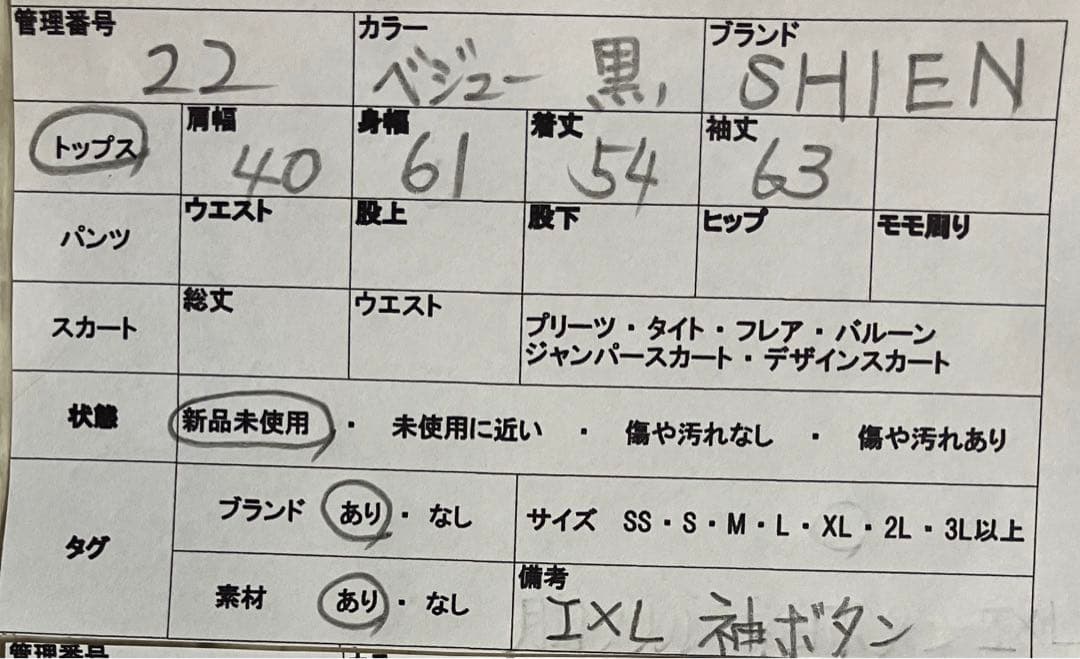 管理番号 カラー ブランド
22 ベジュー 黒 SHIEN
トップス 肩幅 身幅 着丈 袖丈
40 61 54 63
パンツ ウエスト 股上 股下 ヒップ モモ周り
スカート 総丈 ウエスト プリーツ・タイト・フレア・バルーン
ジャンパースカート・デザインスカート
状態 新品未使用 ・ 未使用に近い ・ 傷や汚れなし ・ 傷や汚れあり
タグ ブランド あり・なし サイズ SS・S・M・L・XL・2L・3L以上
素材 あり・なし 備考
IXL 袖ボタン
管理番号